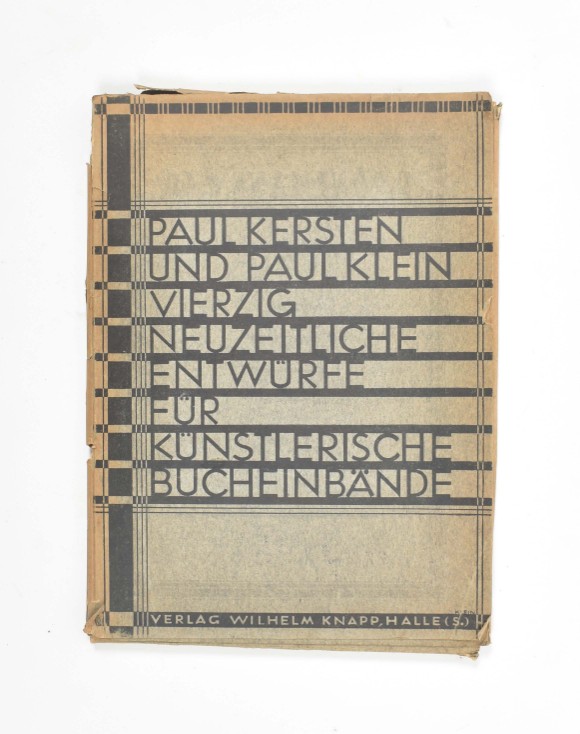 PAUL KERSTEN
UND PAUL KLEIN
VIERZIG
NEUZEITLICHE
ENTWÜRFE
FÜR
KÜNSTLERISCHE
BUCHEINBÄNDE
VERLAG WILHELM KNAPP, HALLE (S.)